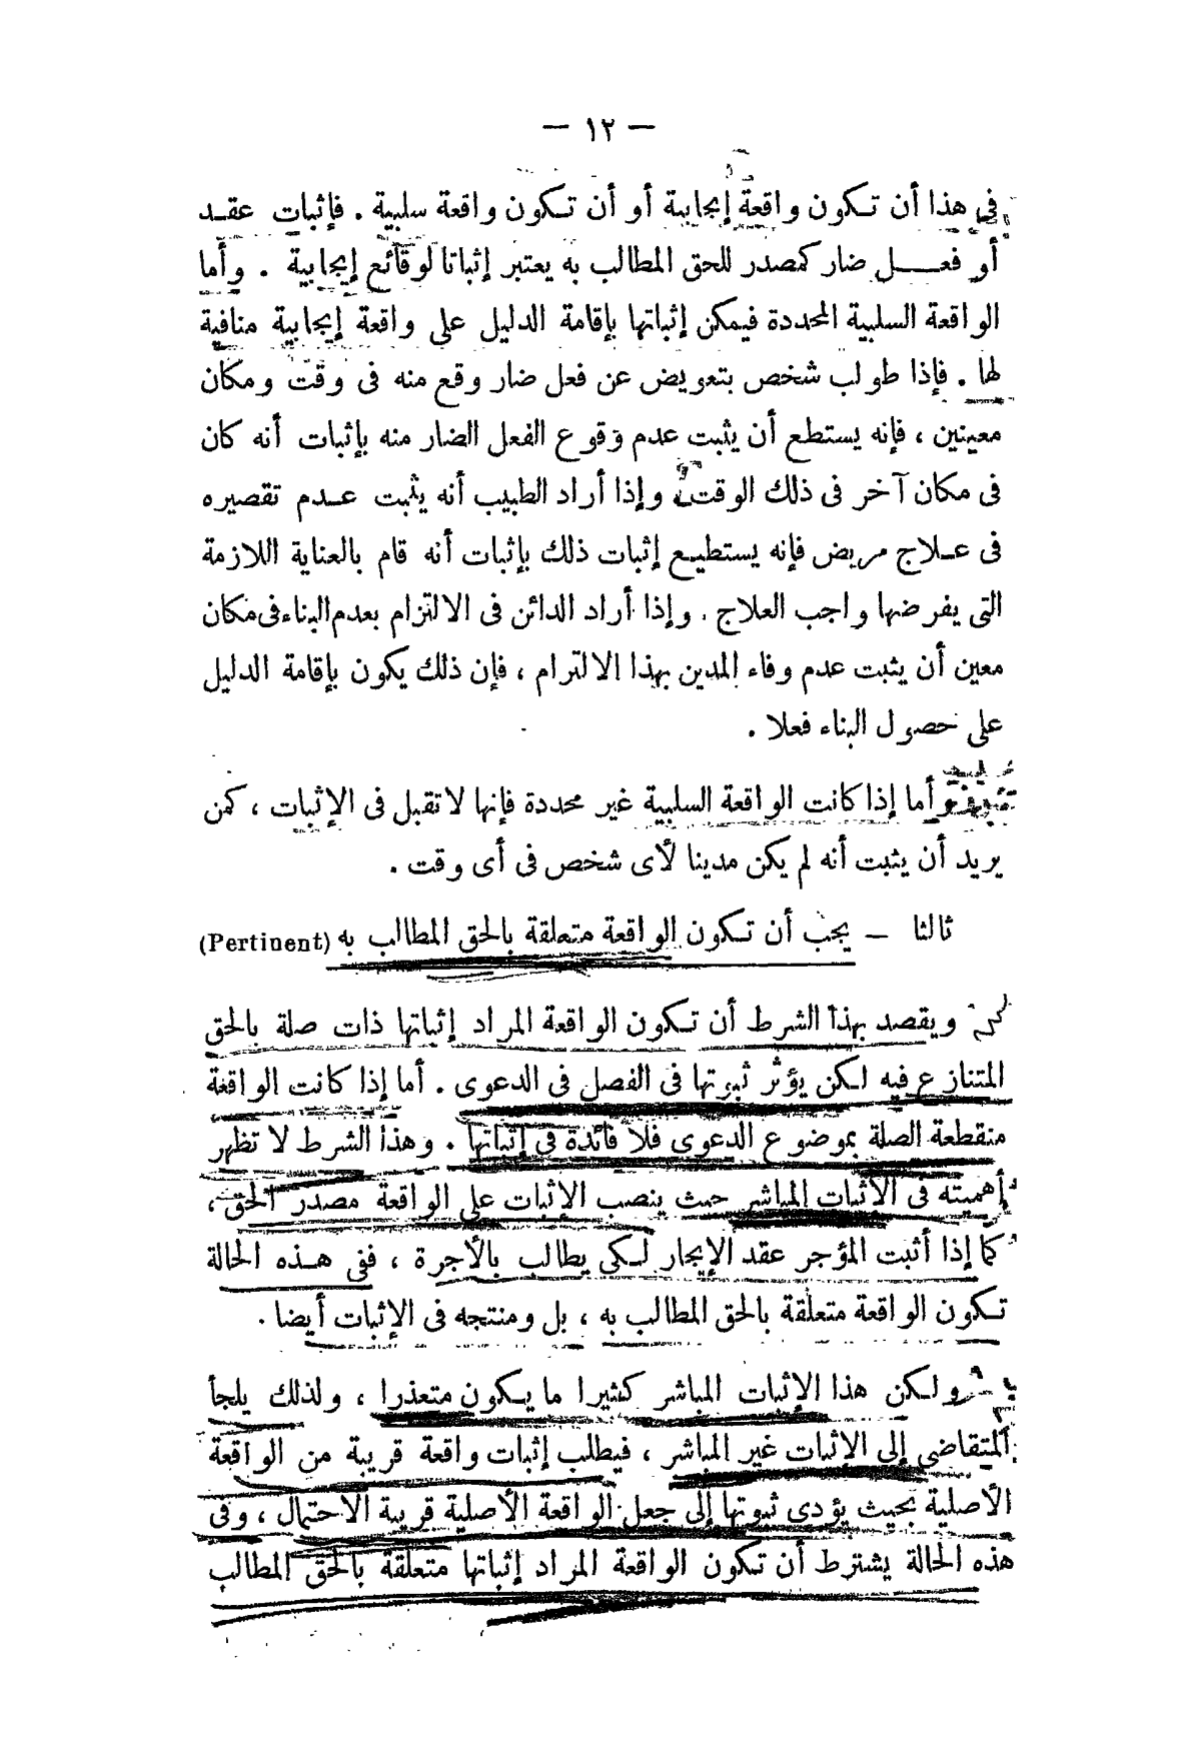 — ١٢ —
فى هذا أن تكون واقعة إيجابية أو أن تكون واقعة سلبية . فإثبات عقد
أو فعل ضار كمصدر للحق المطالب به يعتبر إثباتا لوقائع إيجابية . وأما
الواقعة السلبية المحددة فيمكن إثباتها بإقامة الدليل على واقعة إيجابية منافية
لها . فإذا طولب شخص بتعويض عن فعل ضار وقع منه فى وقت ومكان
معينين ، فإنه يستطع أن يثبت عدم وقوع الفعل الضار منه بإثبات أنه كان
فى مكان آخر فى ذلك الوقت . وإذا أراد الطبيب أنه يثبت عدم تقصيره
فى علاج مريض فإنه يستطيع إثبات ذلك بإثبات أنه قام بالعناية اللازمة
التى يفرضها واجب العلاج . وإذا أراد الدائن فى الالتزام بعدم البناء فى مكان
معين أن يثبت عدم وفاء المدين بهذا الالتزام ، فإن ذلك يكون بإقامة الدليل
على حصول البناء فعلا .
وأما إذا كانت الواقعة السلبية غير محددة فإنها لا تقبل فى الإثبات ، كمن
يريد أن يثبت أنه لم يكن مدينا لأى شخص فى أى وقت .
ثالثا — يجب أن تكون الواقعة متعلقة بالحق المطالب به (Pertinent)
ويقصد بهذا الشرط أن تكون الواقعة المراد إثباتها ذات صلة بالحق
المتنازع فيه لكن يؤثر ثبوتها فى الفصل فى الدعوى . أما إذا كانت الواقعة
منقطعة الصلة بموضوع الدعوى فلا فائدة فى إثباتها . وهذا الشرط لا تظهر
أهميته فى الإثبات المباشر حيث ينصب الإثبات على الواقعة مصدر الحق ،
كما إذا أثبت المؤجر عقد الإيجار لكى يطالب بالأجرة ، ففى هذه الحالة
تكون الواقعة متعلقة بالحق المطالب به ، بل ومنتجه فى الإثبات أيضا .
ولكن هذا الإثبات المباشر كثيرا ما يكون متعذرا ، ولذلك يلجأ
المتقاضى إلى الإثبات غير المباشر ، فيطلب إثبات واقعة قريبة من الواقعة
الأصلية بحيث يؤدى ثبوتها إلى جعل الواقعة الأصلية قريبة الاحتمال ، وفى
هذه الحالة يشترط أن تكون الواقعة المراد إثباتها متعلقة بالحق المطالب